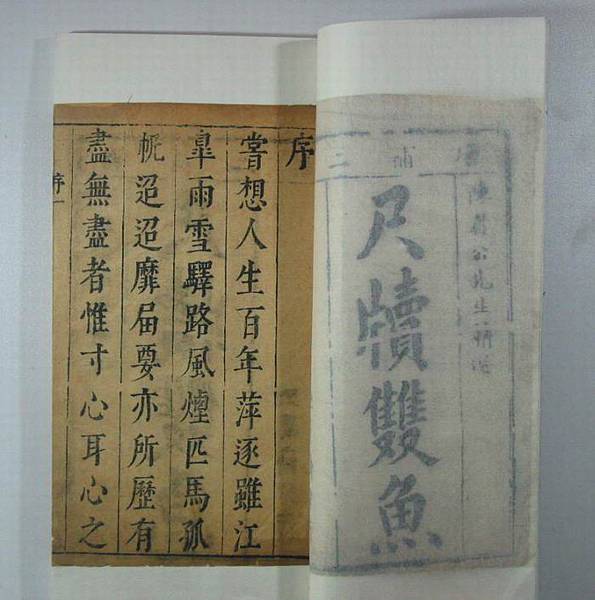 陳眉公先生
補二
尺牘雙魚
序
嘗想人生一百年萍逐雖江
皐雨雪驛路風煙匹馬孤
帆迢迢靡屆要亦所歷有
盡無盡者惟寸心耳心之
序一